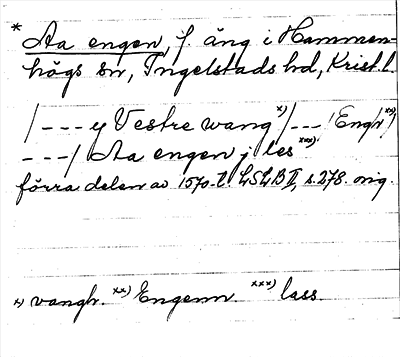 * Aa engen, f. äng i Hammen-
högs sn, Ingelstads hd, Krist.l.
/--- y Vestre wang x)/---/Engr xx)/
---/ Aa engen j les xxx)
förra delen av 1570-t. LSLB II, s.278. orig.
x) vangh. xx) Engenn. xxx) lass.